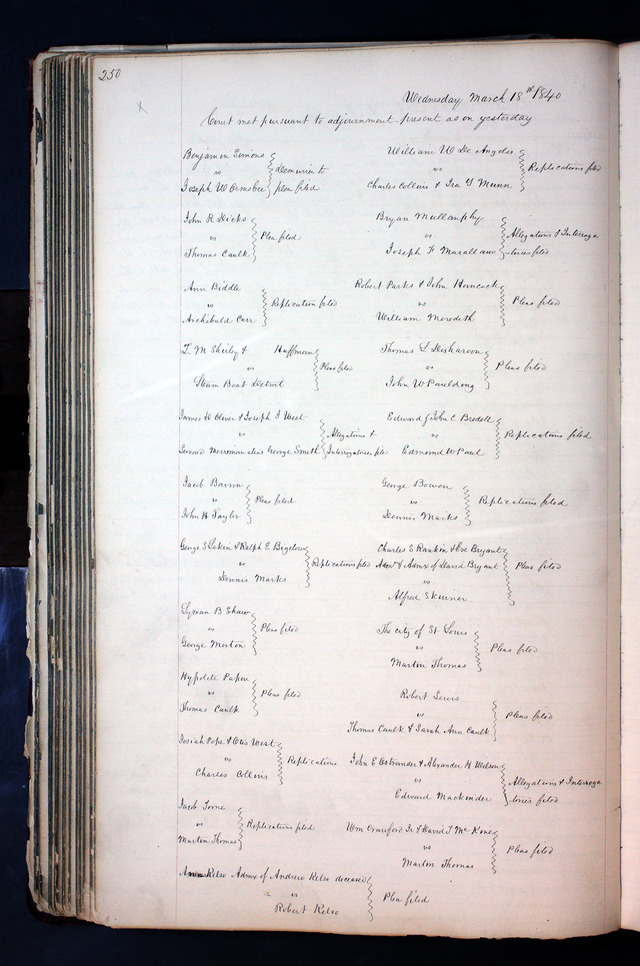 250
Wednesday March 18th 1840
Court met pursuant to adjournment present as on yesterday
Benjamin Simons
vs
Joseph W Ormsbee
Demurrer to
plea filed
John R Hicks
vs
Thomas Caulk
Plea filed
Ann Biddle
vs
Archibald Carr
Replication filed
T. M Shirley & Huffman
vs
Steam Boat Detroit
Pleas filed
James D & Joseph J West
vs
Merriman alias George Smith
Allegations &
Interrogatories filed
Jacob Barron
vs
John H Taylor
Pleas filed
George S Lakin & Ralph E Bigelow
vs
Dennis Marks
Replications filed
Lyman B Shaw
vs
George Morton
Pleas filed
Hypolite Papin
vs
Thomas Caulk
Pleas filed
Josiah Pope & Otis West
vs
Charles Collins
Replications
Jacob
vs
Marton Thomas
Replications filed
Kelso Admx of Andrew Kelso deceased
vs
Robert Kelso
Plea filed
William W De Angelis
vs
Charles Collins & Ira G Munn
Replications filed
Bryan Mullanphy
vs
Joseph F
Allegations & Interroga
tories filed
Robert Parks & John Hancock
vs
William Meredith
Pleas filed
Thomas L Disharoon
vs
John W Pauldong
Pleas filed
Edward J John C Bredell
vs
Edmond W Paul
Replications filed
George Bowon
vs
Dennis Marks
Replications filed
Charles S Rankin & Bryant
Admr & Admx of David Bryant
vs
Alfred Skinner
Pleas filed
The city of St Louis
vs
Marton Thomas
Pleas filed
Robert Lewis
vs
Thomas Caulk & Sarah Ann Caulk
Pleas filed
John E Ostrander & Alexander H Wilson
vs
Edward Mackinder
Allegations & Interroga
tories filed
Wm Crawford Jr & David T Mc Kone
vs
Marton Thomas
Pleas filed